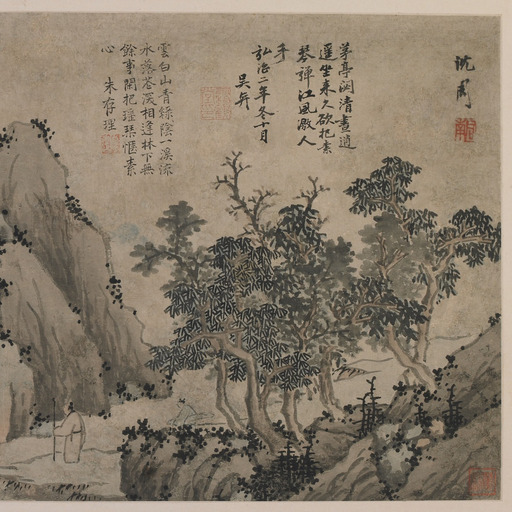 沈周
茅亭闃清晝逍
遥坐来久欲把素
琴彈江風激人
手
弘治二年冬十月
吳奕
雲白山青綠陰一溪流
水落蒼深相逢林下無
餘事閒把瑤琴愜素
心 朱存理